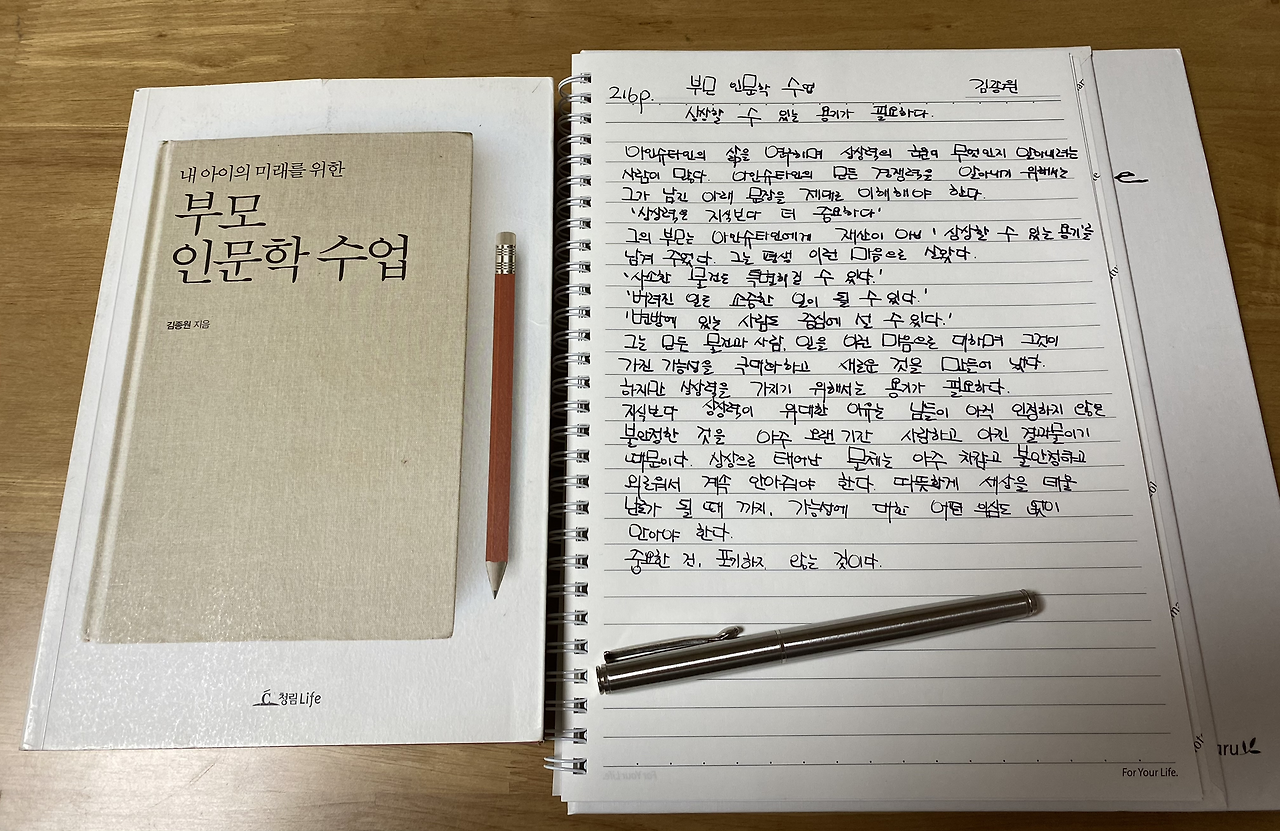 내 아이의 미래를 위한
부모
인문학 수업
김종원 지음
청림Life
216p. 부모 인문학 수업 김종원
상상할 수 있는 용기가 필요하다.
아인슈타인의 삶을 연구하며 상상력의 근원이 무엇인지 알아내려는
사람이 많다. 아인슈타인의 모든 경쟁력을 알아내기 위해서는
그가 남긴 아래 문장을 제대로 이해해야 한다.
'상상력은 지식보다 더 중요하다'
그의 부모는 아인슈타인에게 재산이 아닌 '상상할 수 있는 용기'를
남겨 주었다. 그는 평생 이런 마음으로 살았다.
'사소한 물건도 특별해질 수 있다.'
'버려진 일도 소중한 일이 될 수 있다.'
'변방에 있는 사람도 중심에 설 수 있다.'
그는 모든 물건과 사람, 일을 이런 마음으로 대하며 그것이
가진 가능성을 극대화하고 새로운 것을 만들어 냈다.
하지만 상상력을 가지기 위해서는 용기가 필요하다.
지식보다 상상력이 위대한 이유는 남들이 아직 인정하지 않은
불안정한 것을 아주 오랜 기간 사랑하고 아낀 결과물이기
때문이다. 상상으로 태어난 문제는 아주 차갑고 불안정하고
외로워서 계속 안아줘야 한다. 따뜻하게 세상을 데울
난로가 될 때 까지, 가능성에 대한 어떤 의심도 없이
안아야 한다.
중요한 건, 포기하지 않는 것이다.
For Your Life.